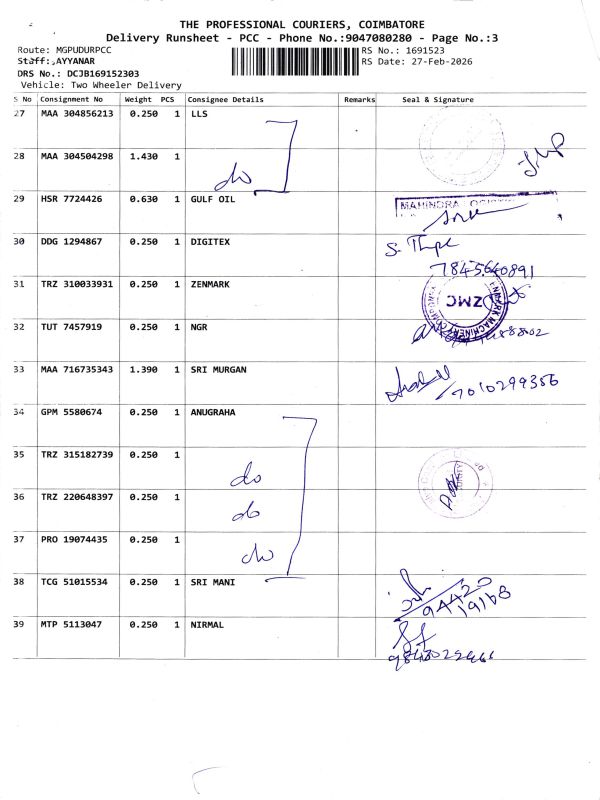 THE PROFESSIONAL COURIERS, COIMBATORE
Delivery Runsheet - PCC - Phone No.:9047080280 - Page No.:3
Route: MGPUDURPCC
RS No.: 1691523
Staff: AYYANAR
RS Date: 27-Feb-2026
DRS No.: DCJB169152303
Vehicle: Two Wheeler Delivery
S No Consignment No Weight PCS Consignee Details Remarks Seal & Signature
27 MAA 304856213 0.250 1 LLS
28 MAA 304504298 1.430 1 do
29 HSR 7724426 0.630 1 GULF OIL MAHINDRA
30 DDG 1294867 0.250 1 DIGITEX
7845640891
31 TRZ 310033931 0.250 1 ZENMARK ZMC
32 TUT 7457919 0.250 1 NGR
33 MAA 716735343 1.390 1 SRI MURGAN
7010299356
34 GPM 5580674 0.250 1 ANUGRAHA
35 TRZ 315182739 0.250 1 do
36 TRZ 220648397 0.250 1 do
37 PRO 19074435 0.250 1 do
38 TCG 51015534 0.250 1 SRI MANI
94420
19168
39 MTP 5113047 0.250 1 NIRMAL